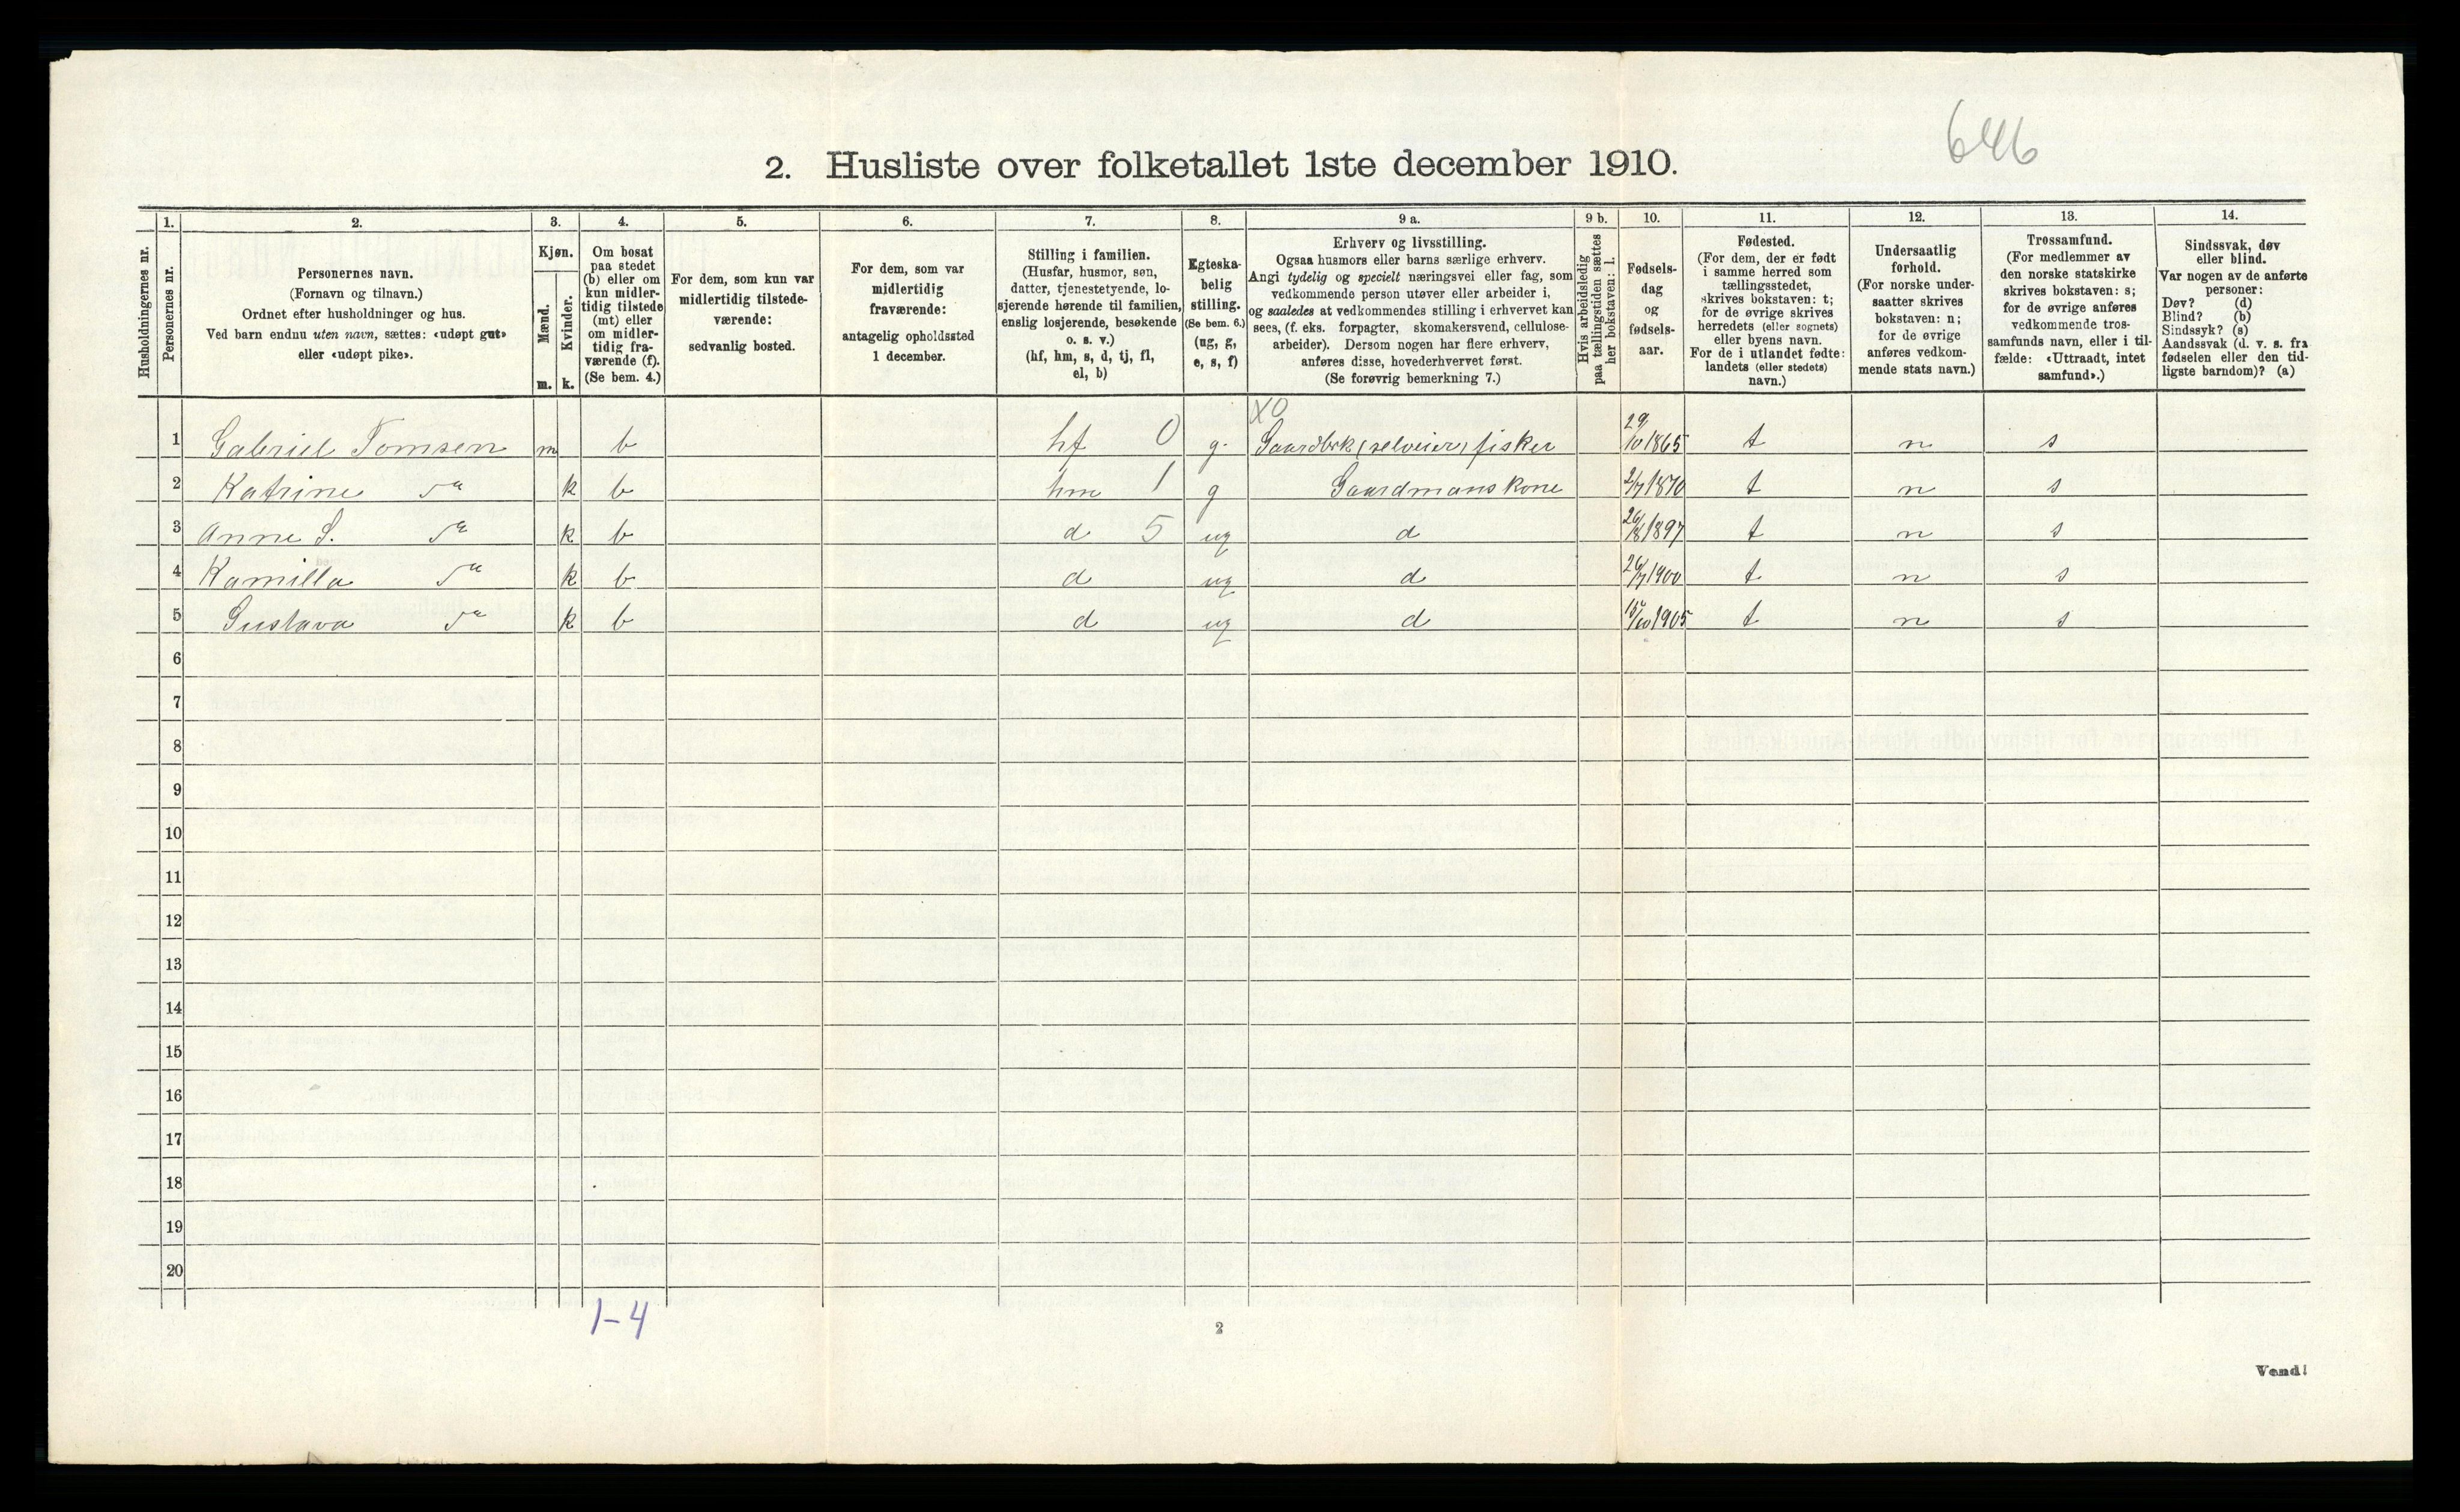 646
2. Husliste over folketallet 1ste december 1910.
Husholdningernes nr.
1.
Personernes nr.
2.
Personernes navn.
(Fornavn og tilnavn.)
Ordnet efter husholdninger og hus.
Ved barn endnu uten navn, sættes: «udøpt gut»
eller «udøpt pike».
3.
Kjøn.
Mænd.
m.
Kvinder.
k.
4.
Om bosat
paa stedet
(b) eller om
kun midler-
tidig tilstede
(mt) eller
om midler-
tidig fra-
værende (f).
(Se bem. 4.)
5.
For dem, som kun var
midlertidig tilstede-
værende:
sedvanlig bosted.
6.
For dem, som var
midlertidig
fraværende:
antagelig opholdssted
1 december.
7.
Stilling i familien.
(Husfar, husmor, søn,
datter, tjenestetyende, lo-
sjerende hørende til familien,
enslig losjerende, besøkende
o. s. v.)
(hf, hm, s, d, tj, fl,
el, b)
8.
Egteska-
belig
stilling.
(Se bem. 6.)
(ug, g,
e, s, f)
9 a.
Erhverv og livsstilling.
Ogsaa husmors eller barns særlige erhverv.
Angi tydelig og specielt næringsvei eller fag, som
vedkommende person utøver eller arbeider i,
og saaledes at vedkommendes stilling i erhvervet kan
sees, (f. eks. forpagter, skomakersvend, cellulose-
arbeider). Dersom nogen har flere erhverv,
anføres disse, hovederhvervet først.
(Se forøvrig bemerkning 7.)
9 b.
Hvis arbeidsledig
paa tællingstiden sættes
her bokstaven: l.
10.
Fødsels-
dag
og
fødsels-
aar.
11.
Fødested.
(For dem, der er født
i samme herred som
tællingsstedet,
skrives bokstaven: t;
for de øvrige skrives
herredets (eller sognets)
eller byens navn.
For de i utlandet fødte:
landets (eller stedets)
navn.)
12.
Undersaatlig
forhold.
(For norske under-
saatter skrives
bokstaven: n;
for de øvrige
anføres vedkom-
mende stats navn.)
13.
Trossamfund.
(For medlemmer av
den norske statskirke
skrives bokstaven: s;
for de øvrige anføres
vedkommende tros-
samfunds navn, eller i til-
fælde: «Uttraadt, intet
samfund».)
14.
Sindssvak, døv
eller blind.
Var nogen av de anførte
personer:
Døv? (d)
Blind? (b)
Sindssyk? (s)
Aandssvak (d. v. s. fra
fødselen eller den tid-
ligste barndom)? (a)
X0
1 Gabriel Tomsen m b hf 0 g. Gaardbrk (selveier) fisker 29/10 1865 t n s
2 Katrine da k b hm 1 g Gaardmanskone 2/7 1870 t n s
3 Anne S. da k b d 5 ug d 26/8 1897 t n s
4 Kamilla da k b d ug d 26/7 1900 t n s
5 Gustava da k b d ug d 15/10 1905 t n s
6
7
8
9
10
11
12
13
14
15
16
17
18
19
20
1-4
2
Vend!